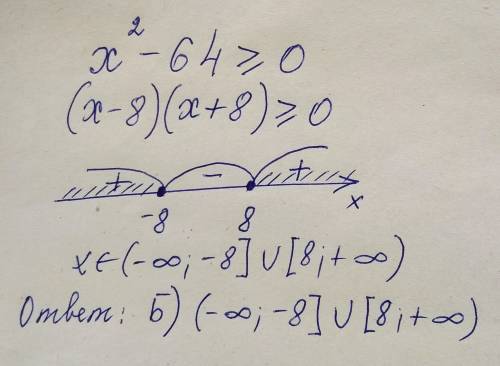 x² - 64 ⩾ 0
(x-8)(x+8) ⩾ 0
+ - +
-8 8 x
x ∈ (-∞; -8] ∪ [8; +∞)
Ответ: б) (-∞; -8] ∪ [8; +∞)